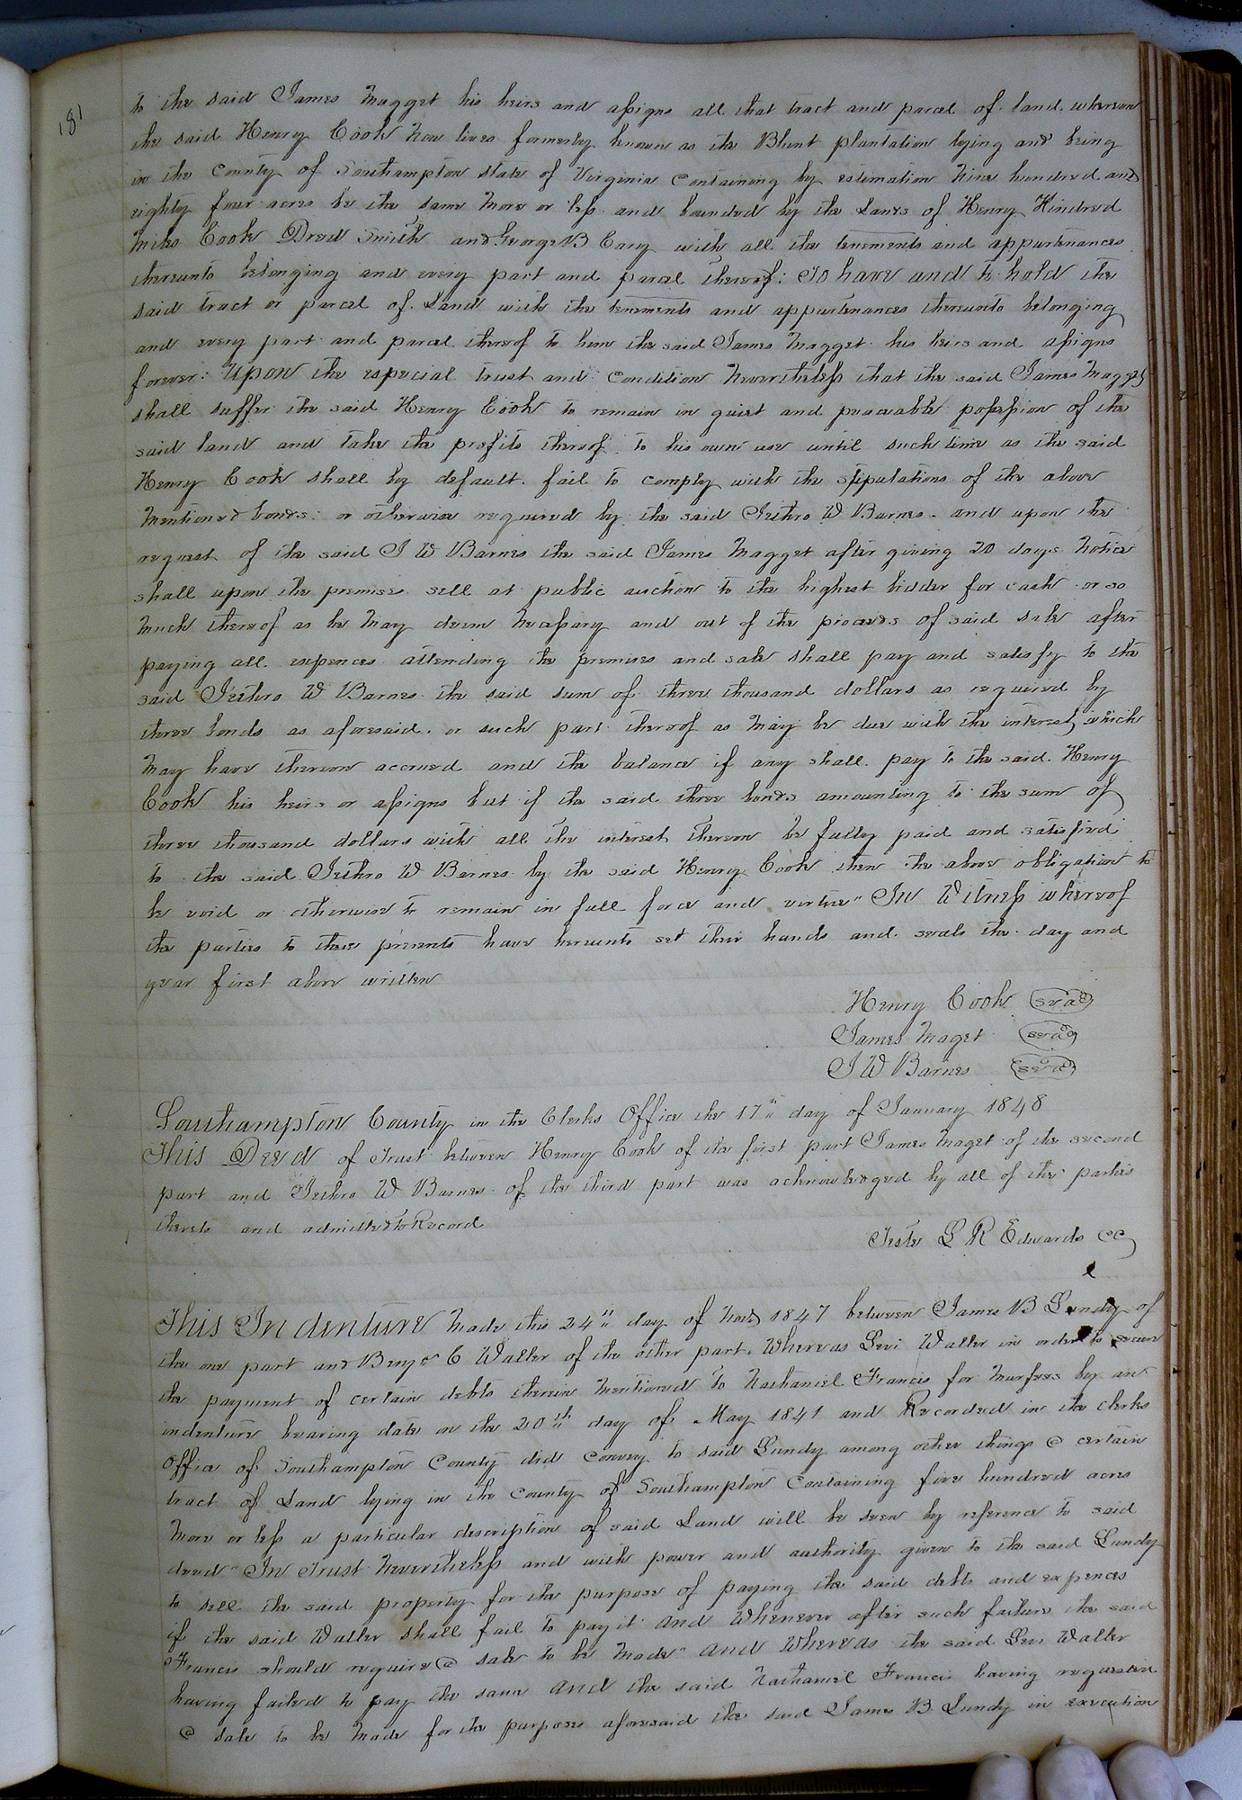 181
to the said James Magget his heirs and assigns all that tract and parcel of land whereon
the said Henry Cook now lives formerly known as the Blunt plantation lying and being
in the County of Southampton state of Virginia Containing by estimation Nine hundred and
eighty four acres be the same more or less and bounded by the Lands of Henry Hindred
Miles Cook Dred Smith and George B Cary with all the tenements and appurtenances
thereunto belonging and every part and parcel thereof: To have and to hold the
said tract or parcel of Land with the tenements and appurtenances thereunto belonging
and every part and parcel thereof to him the said James Magget his heirs and assigns
forever: Upon the especial trust and condition Nevertheless that the said James Magget
shall suffer the said Henry Cook to remain in quiet and peaceable possession of the
said land and take the profits thereof to his own use until such time as the said
Henry Cook shall by default fail to comply with the stipulations of the above
mentioned bonds: or otherwise required by the said Jethro W Barnes. and upon the
request of the said J W Barnes the said James Magget after giving 20 days Notice
shall upon the premises sell at public auction to the highest bidder for cash or so
much thereof as he may deem necessary and out of the proceeds of said sale after
paying all expences attending the premises and sale shall pay and satisfy to the
said Jethro W Barnes the said sum of three thousand dollars as required by
three bonds as aforesaid. or such part thereof as may be due with the interest which
may have thereon accrued and the balance if any shall pay to the said Henry
Cook his heirs or assigns but if the said three bonds amounting to the sum of
three thousand dollars with all the interest thereon be fully paid and satisfied
to the said Jethro W Barnes by the said Henry Cook then the above obligation to
be void or otherwise to remain in full force and virtue" In Witness whereof
the parties to these presents have hereunto set their hands and seals the day and
year first above written
Henry Cook seal
James Maget seal
J W Barnes seal
Southampton County in the Clerks Office the 17th day of January 1848
This Deed of Trust between Henry Cook of the first part James Maget of the second
part and Jethro W Barnes of the third part was acknowledged by all of the parties
thereto and admitted to Record
Teste L R Edwards CC
This Indenture Made this 24th day of Novr 1847 between James B Lundy of
the one part and Benjn C Waller of the other part. Whereas Levi Waller in order to secure
the payment of certain debts therein mentioned to Nathaniel Francis for Murfrees by an
indenture bearing date on the 20th day of May 1841 and Recorded in the clerks
Office of Southampton County did Convey to said Lundy among other things a certain
tract of Land lying in the County of Southampton Containing five hundred acres
more or less a particular description of said Land will be seen by reference to said
deed "In Trust Nevertheless and with power and authority given to the said Lundy
to sell the said property for the purpose of paying the said debts and expences
if the said Waller shall fail to pay it and Whenever after such failure the said
Francis should require a sale to be Made" and Whereas the said Levi Waller
having failed to pay the same and the said Nathaniel Francis having requested
a sale to be made for the purpose aforesaid the said James B Lundy in execution